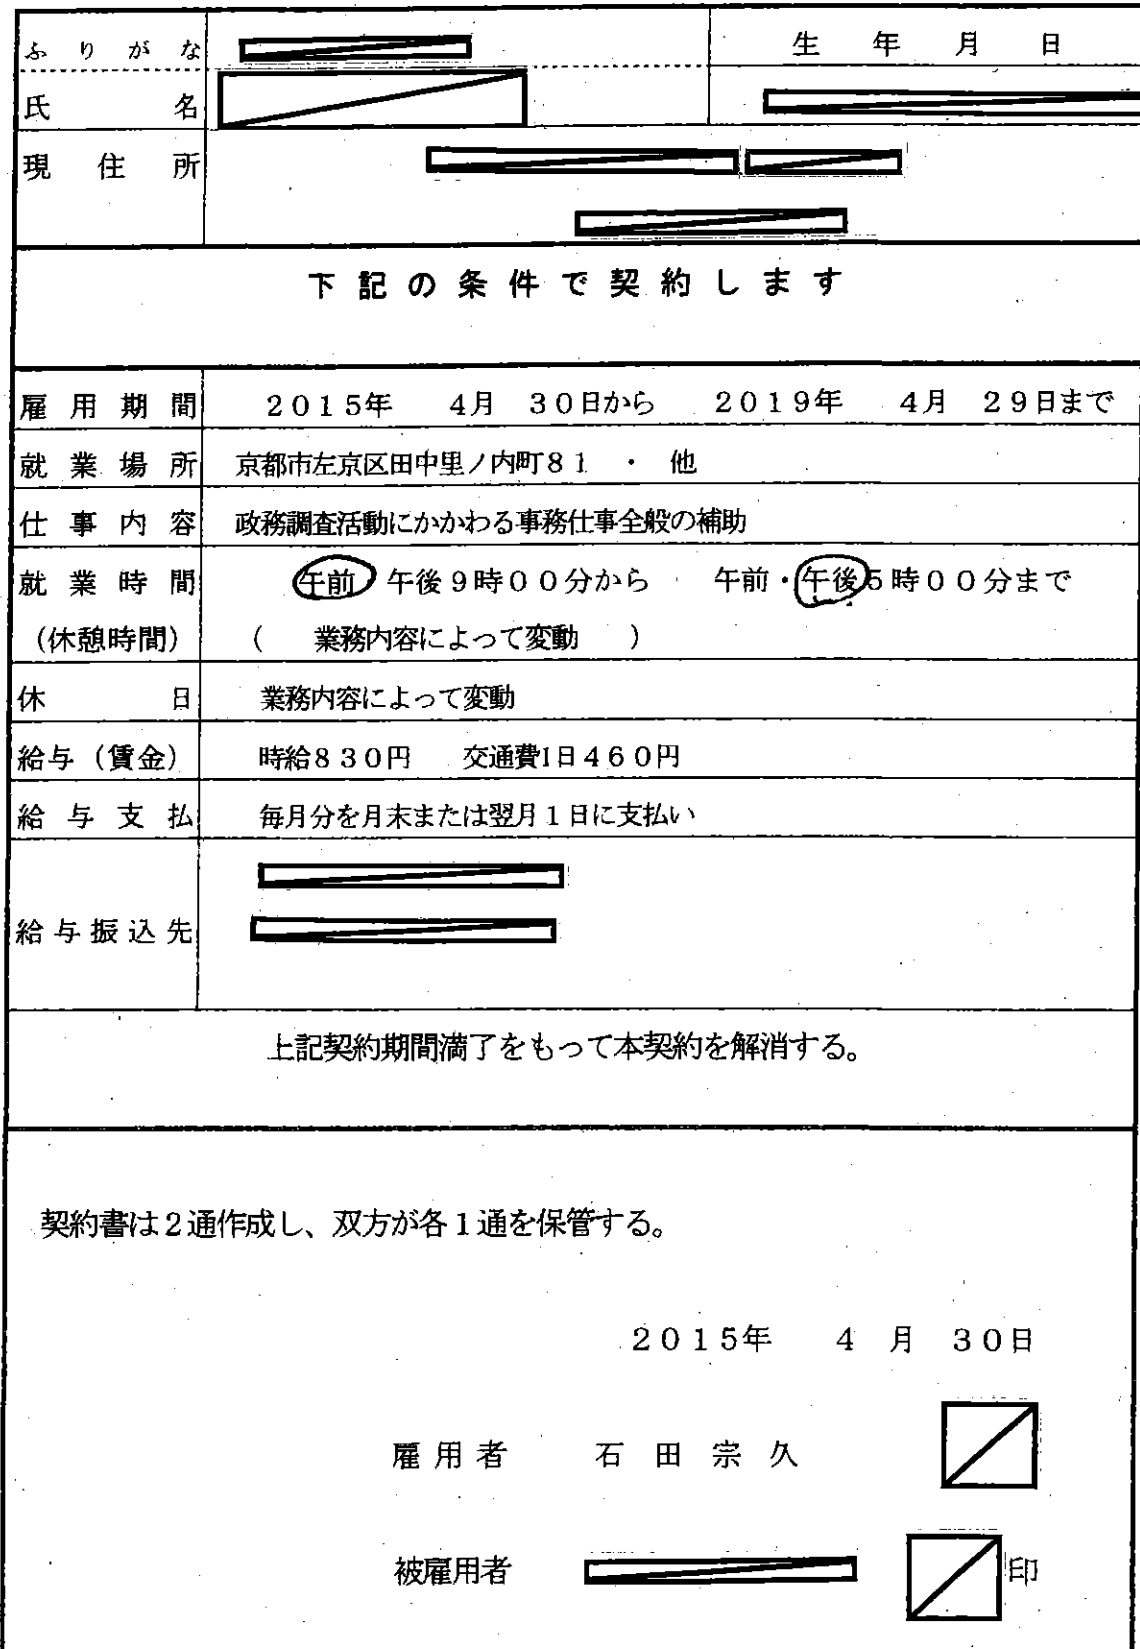 ふりがな 生年月日
氏名
現住所
下記の条件で契約します
雇用期間 2015年 4月 30日から 2019年 4月 29日まで
就業場所 京都市左京区田中里ノ内町81 ・ 他
仕事内容 政務調査活動にかかわる事務仕事全般の補助
就業時間 午前 午後9時00分から 午前・午後5時00分まで
(休憩時間) ( 業務内容によって変動 )
休日 業務内容によって変動
給与(賃金) 時給830円 交通費1日460円
給与支払 毎月分を月末または翌月1日に支払い
給与振込先
上記契約期間満了をもって本契約を解消する。
契約書は2通作成し、双方が各1通を保管する。
2015年 4月 30日
雇用者 石田宗久
被雇用者 印